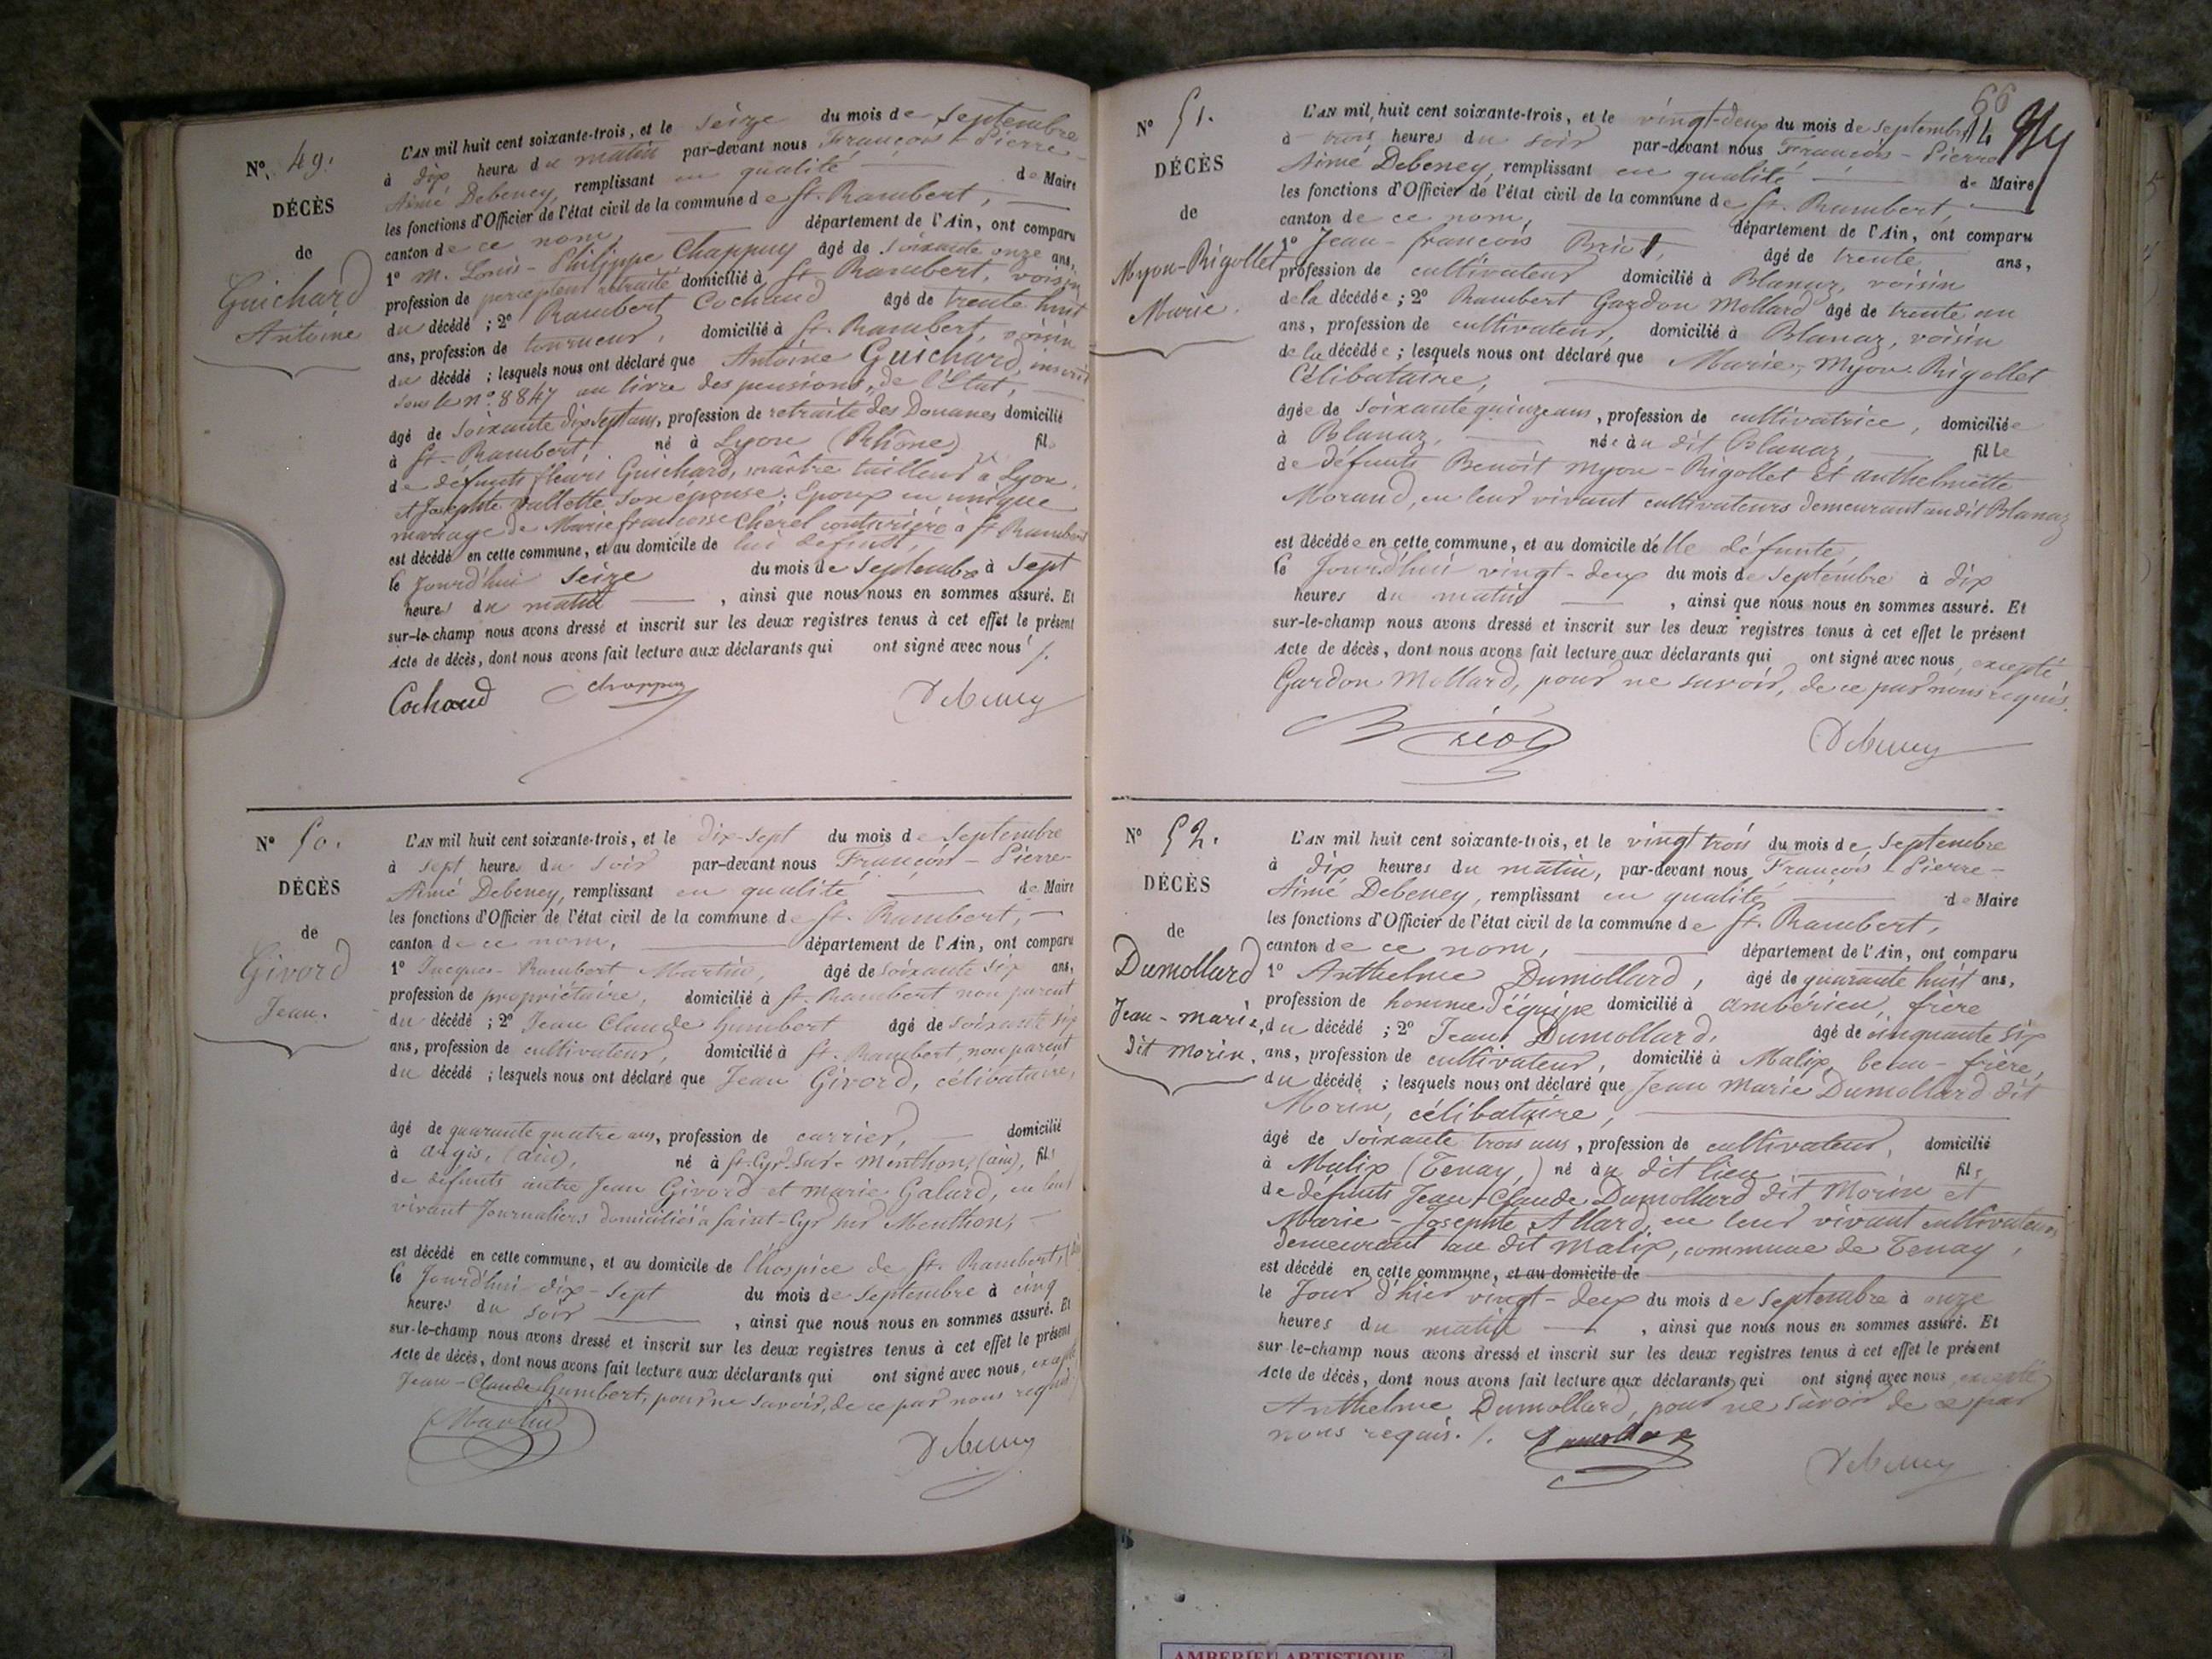 No. 49.
DÉCÈS
de
Guichard
Antoine
L'AN mil huit cent soixante-trois, et le seize du mois de Septembre
à dix heure du matin par-devant nous François-Pierre-
Aimé Debeney, remplissant en qualité de Maire
les fonctions d'Officier de l'état civil de la commune de St. Rambert,
canton de ce nom, département de l'Ain, ont comparu
1º M. Louis-Philippe Chappuy âgé de soixante onze ans,
profession de percepteur retraité domicilié à St. Rambert, voisin
du décédé ; 2º Rambert Cochaud âgé de trente huit
ans, profession de tourneur, domicilié à St. Rambert, voisin
du décédé ; lesquels nous ont déclaré que Antoine Guichard, inscrit
sous le nº 8847 au livre des pensions de l'Etat,
âgé de soixante dix sept ans, profession de retraité des Douanes domicilié
à St. Rambert, né à Lyon (Rhône) fils
de défunts fleuri Guichard, maître tailleur à Lyon,
et Josephte Vallette son épouse. Epoux en unique
mariage de Marie françoise Cherel couturière à St Rambert
est décédé en cette commune, et au domicile de lui défunt,
le Jourd'hui seize du mois de Septembre à sept
heures du matin , ainsi que nous nous en sommes assuré. Et
sur-le-champ nous avons dressé et inscrit sur les deux registres tenus à cet effet le présent
Acte de décès, dont nous avons fait lecture aux déclarants qui ont signé avec nous ./.
Cochaud Chappuy Debeney
No 50.
DÉCÈS
de
Givord
Jean.
L'AN mil huit cent soixante-trois, et le dix-sept du mois de Septembre
à sept heure du soir par-devant nous François-Pierre-
Aimé Debeney, remplissant en qualité de Maire
les fonctions d'Officier de l'état civil de la commune de St. Rambert,
canton de ce nom, département de l'Ain, ont comparu
1º Jacques-Rambert Martin, âgé de soixante six ans,
profession de propriétaire, domicilié à St. Rambert non parent
du décédé ; 2º Jean Claude Humbert âgé de soixante six
ans, profession de cultivateur, domicilié à St. Rambert, non parent
du décédé ; lesquels nous ont déclaré que Jean Givord, célibataire,
âgé de quarante quatre ans, profession de carrier, domicilié
à argis, (ain), né à St-Cyr-sur-Menthon, (ain), fils
de défunts autre Jean Givord et marie Galard, en leur
vivant Journaliers domiciliés à Saint-Cyr sur Menthon,
est décédé en cette commune, et au domicile de l'hospice de St. Rambert,
le Jourd'hui dix-sept du mois de Septembre à cinq
heures du soir , ainsi que nous nous en sommes assuré. Et
sur-le-champ nous avons dressé et inscrit sur les deux registres tenus à cet effet le présent
Acte de décès, dont nous avons fait lecture aux déclarants qui ont signé avec nous, excepté
Jean-Claude Humbert, pour ne savoir, de ce par nous requis
Martin Debeney
66
No 51.
DÉCÈS
de
Myon-Rigollet
Marie.
L'AN mil huit cent soixante-trois, et le vingt-deux du mois de Septembre
à trois heures du soir par-devant nous François-Pierre
Aimé Debeney, remplissant en qualité de Maire
les fonctions d'Officier de l'état civil de la commune de St. Rambert,
canton de ce nom, département de l'Ain, ont comparu
1º Jean-françois Briot, âgé de trente ans,
profession de cultivateur domicilié à Blanaz, voisin
de la décédée ; 2º Rambert Gardon Mollard âgé de trente un
ans, profession de cultivateur, domicilié à Blanaz, voisin
de la décédée ; lesquels nous ont déclaré que Marie, Myon-Rigollet
Célibataire,
âgée de soixante quinze ans, profession de cultivatrice, domiciliée
à Blanaz, née au dit Blanaz, fille
de défunts Benoit Myon-Rigollet et anthelmette
Morand, en leur vivant cultivateurs demeurant au dit Blanaz
est décédée en cette commune, et au domicile d'elle défunte,
le Jourd'hui vingt-deux du mois de Septembre à dix
heures du matin , ainsi que nous nous en sommes assuré. Et
sur-le-champ nous avons dressé et inscrit sur les deux registres tenus à cet effet le présent
Acte de décès, dont nous avons fait lecture aux déclarants qui ont signé avec nous, excepté
Gardon Mollard, pour ne savoir, de ce par nous requis.
Briot Debeney
No 52.
DÉCÈS
de
Dumollard
Jean-Marie,
dit Morin.
L'AN mil huit cent soixante-trois, et le vingt trois du mois de Septembre
à dix heures du matin, par-devant nous François-Pierre-
Aimé Debeney, remplissant en qualité de Maire
les fonctions d'Officier de l'état civil de la commune de St. Rambert,
canton de ce nom, département de l'Ain, ont comparu
1º Anthelme Dumollard, âgé de quarante huit ans,
profession de homme d'équipe domicilié à ambérieu, frère
du décédé ; 2º Jean Dumollard, âgé de cinquante six
ans, profession de cultivateur, domicilié à Malix, beau-frère,
du décédé ; lesquels nous ont déclaré que Jean Marie Dumollard dit
Morin, célibataire,
âgé de soixante trois ans, profession de cultivateur, domicilié
à Malix (Tenay,) né au dit lieu fils
de défunts Jean-Claude Dumollard dit Morin et
Marie-Josephte Allard, en leur vivant cultivateurs
demeurant au dit Malix, commune de Tenay,
est décédé en cette commune, et au domicile de
le Jour d'hier vingt-deux du mois de Septembre à onze
heures du matin , ainsi que nous nous en sommes assuré. Et
sur le-champ nous avons dressé et inscrit sur les deux registres tenus à cet effet le présent
Acte de décès, dont nous avons fait lecture aux déclarants qui ont signé avec nous, excepté
Anthelme Dumollard, pour ne savoir de ce par
nous requis. /. Dumollard
Debeney
AMBERIEU ARTISTIQUE